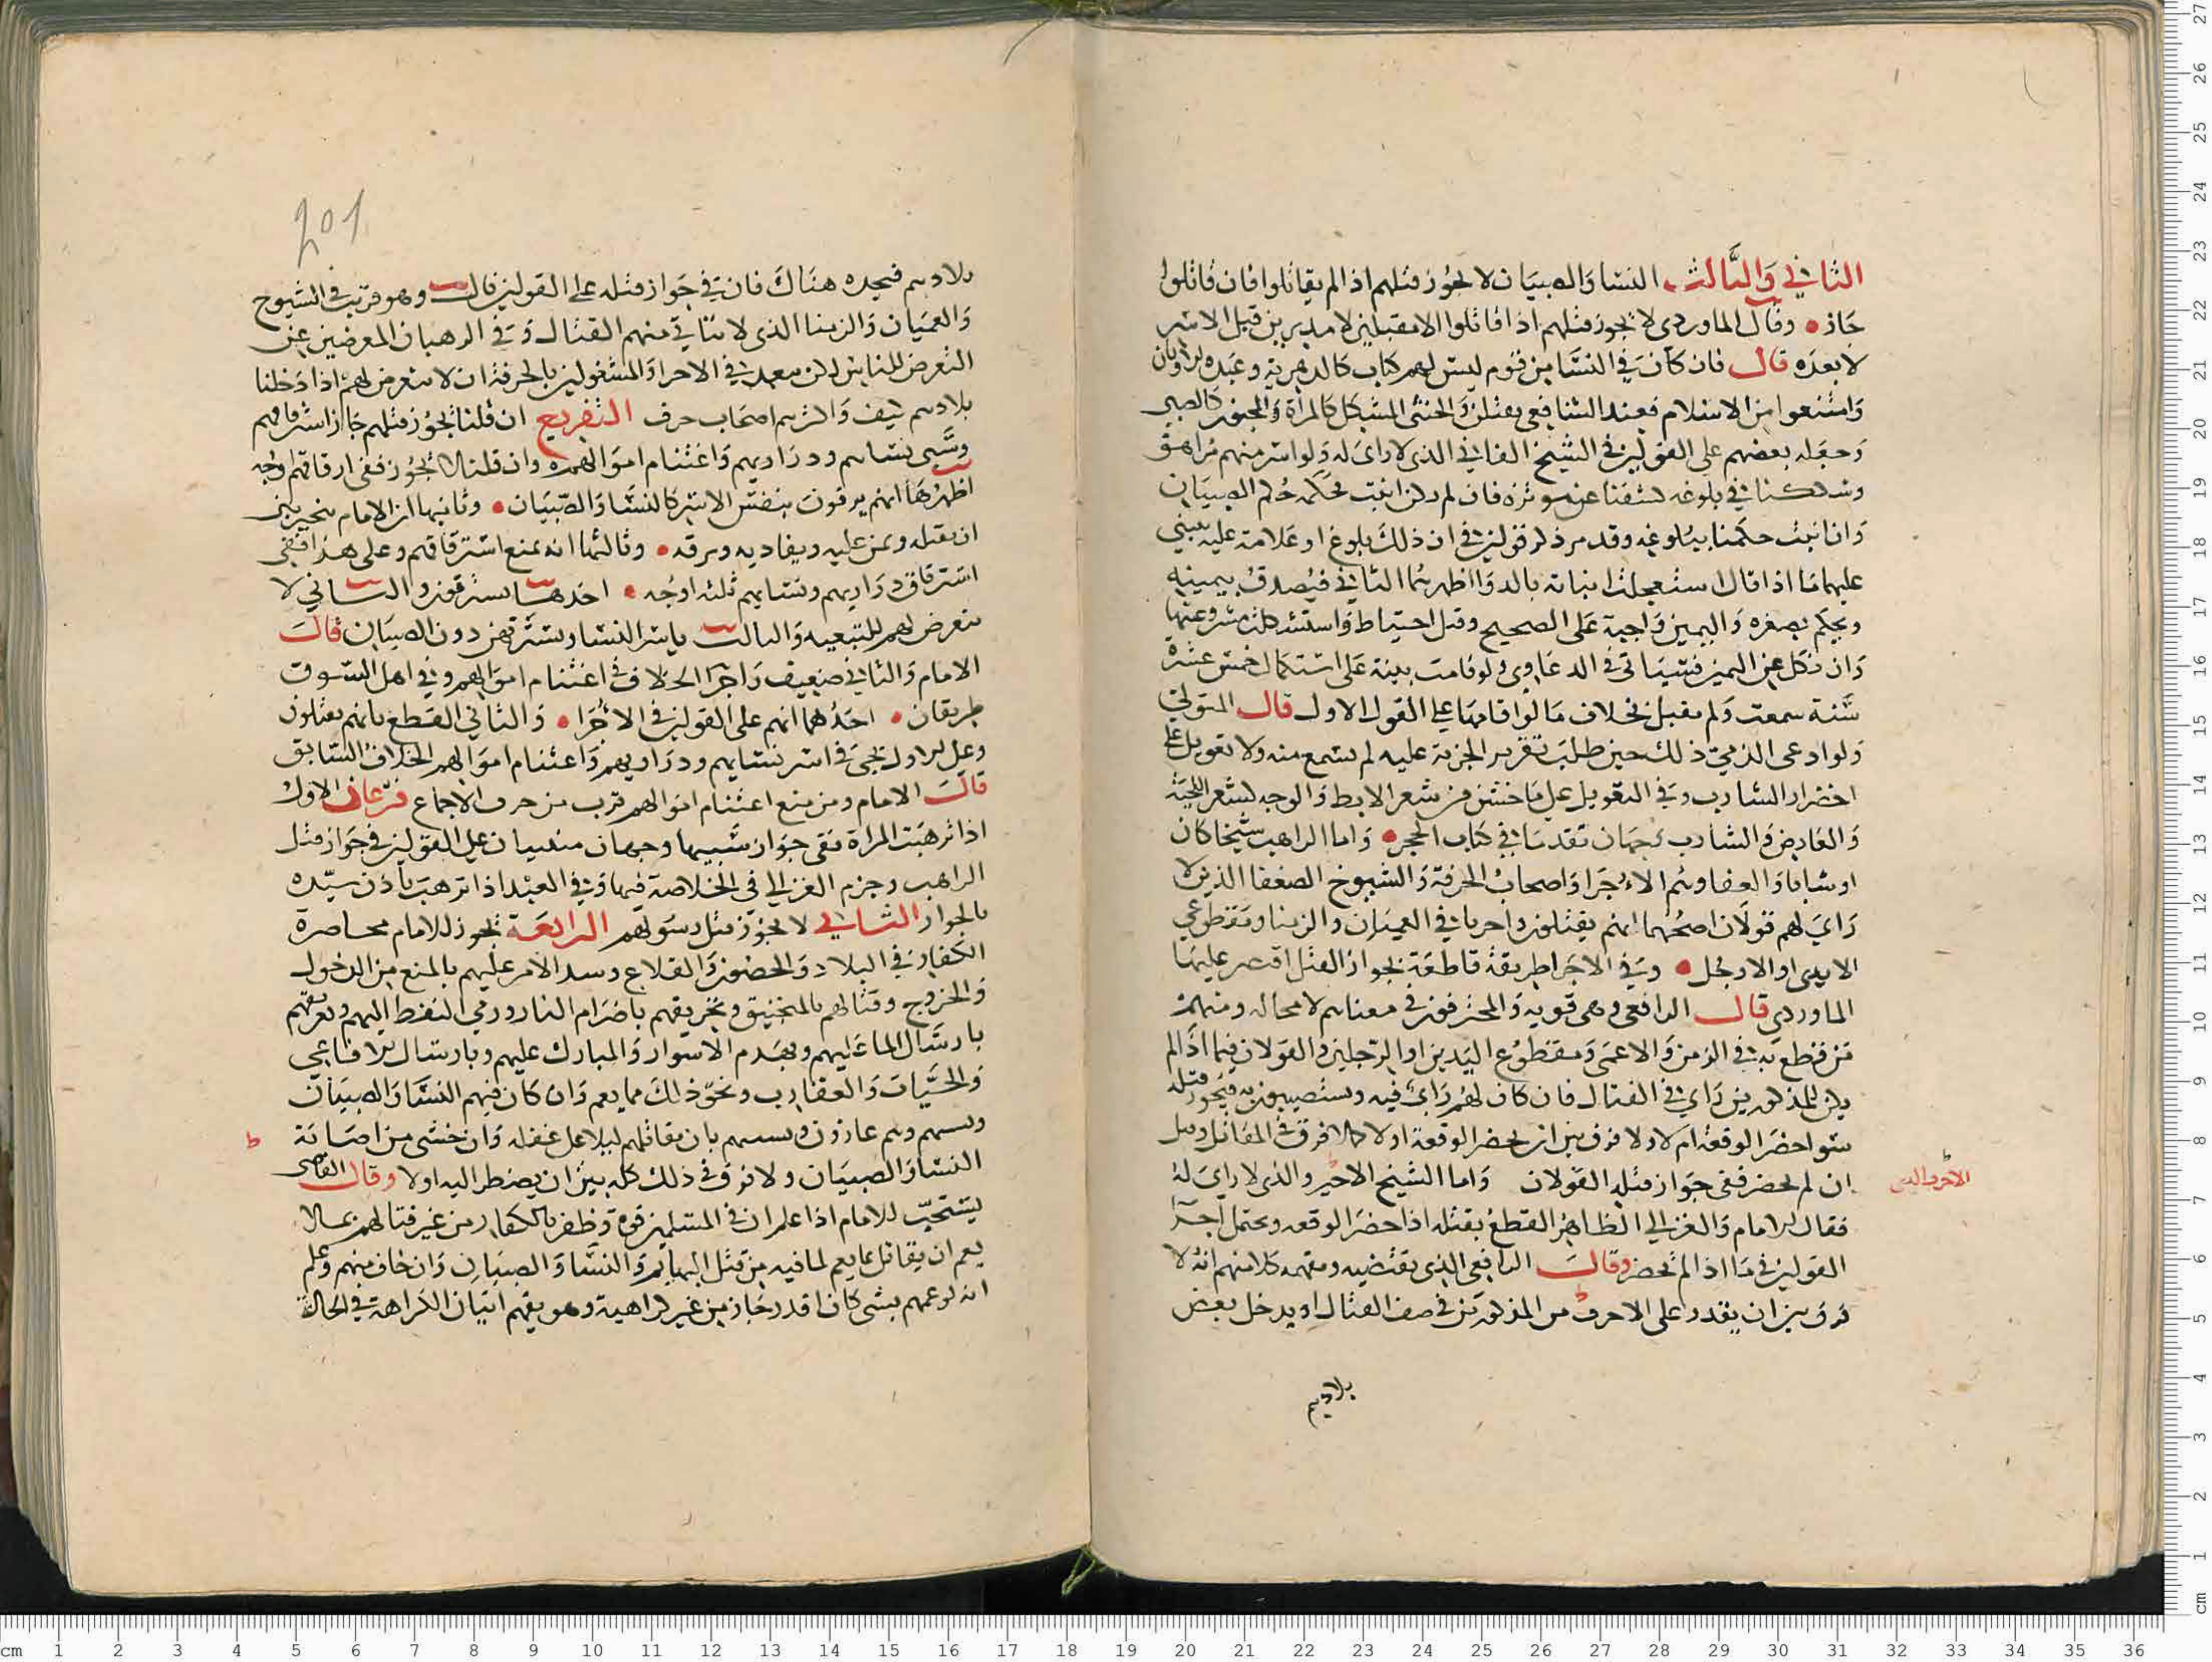 الثاني والثالث النسا والصبيان لا يجوز قتلهم اذا لم يقاتلوا فان قاتلوا
جاز وقال الماوردي لا يجوز قتلهم اذا قاتلوا الا مقبلين لا مدبرين قبل الاسر
لا بعده قال فان كان في النسا من قوم ليس لهم كتاب كالدهرية وعبدة الاوثان
وامتنعوا من الاسلام فعند الشافعي يقتلن والخنثى المشكل كالمرأة والمجنون كالصبي
وجعله بعضهم على القولين في الشيخ الفاني الذي لا راي له ولو اسر منهم مراهق
وشككنا في بلوغه كشفنا عن موتزره فان لم يكن انبت بحكمه حكم الصبيان
وان انبت حكمنا ببلوغه وقد مر ذكر قولين في ان ذلك بلوغ او علامة عليه يبني
عليهما ما اذا قال استعجلت انباته بالدوا اظهرهما الثاني فيصدق بيمينه
ويحكم بصغره واليمين واجبة على الصحيح وقيل احتياط واستشكلت مشروعيتها
وان نكل عن اليمين فسياتي في الدعاوي ولو قامت بينة على استكمال خمس عشرة
سنة سمعت ولم يقبل بخلاف ما لو اقامها على القول الاول قال المتولي
ولو ادعى الذمي ذلك حين طلب تقرير الجزية عليه لم يسمع منه ولا تعويل على
اخضرار الشارب وفي التعويل على ما خشن من شعر الابط والوجه لشعر اللحية
والعارض والشارب وجهان تقدما في كتاب الحجر واما الراهب شيخا كان
او شابا والعسفا وهم الاجرا واصحاب الحرفة والشيوخ الضعفا الذين لا
راي لهم قولان اصحهما انهم يقتلون واجريا في العميان والزمنا ومقطوعي
الايدي او الارجل وفي الاجرا طريقة قاطعة بجواز القتل اقتصر عليها
الماوردي قال الرافعي وهي قوية والمحترفون في معناهم لا محالة ومنهم
من قطع به في الزمن والاعمى ومقطوع اليدين او الرجلين والقولان فيما اذا لم
يكن للمذكورين راي في القتال فان كان لهم راي فيه ويستصيبون به فيجوز قتله
سوا حضر الوقعة ام لا ولا فرق بين ان يحضر الوقعة اولا كما لا فرق في المقاتل وقيل
ان لم يحضر ففي جواز قتله القولان واما الشيخ الاخير والذي لا راي له
فقال الامام والغزالي الظاهر القطع بقتله اذا حضر الوقعه ويحتمل اجرا
القولين في ما اذا لم يحضر وقال الرافعي الذي يقتضيه ومفهمه كلامهم انه لا
فرق بين ان يقدر على الاحرف من المذكورين في صف القتال او يدخل بعض
بلادهم
201
بلادهم فيجده هناك فان في جواز قتله على القولين قال وهو قريب في الشيوخ
والعميان والزمنا الذي لا يتاتى منهم القتال وفي الرهبان المعرضين عن
التعرض للناس لكن يبعد في الاحرا والمشغولين بالحرفة ان لا يتعرض لهم اذا دخلنا
بلادهم كيف واكثرهم اصحاب حرف التفريع ان قلنا يجوز قتلهم جاز استرقاقهم
وسبي نسايهم وذراريهم واغتنام اموالهم وان قلنا لا يجوز ففي ارقاقهم اوجه
اظهرها انهم يرقون بنفس الاسر كالنسا والصبيان وثانيها ان الامام يتخير بين
ان يقتله ويمن عليه ويفاديه ويرقه وثالثها انه يمنع استرقاقهم وعلى هذا ففي
استرقاق ذراريهم ونسايهم ثلثه اوجه احدها يسترقون والثاني لا
يتعرض لهم للتبعيه والثالث ياسر النسا ويسترقهن دون الصبيان قال
الامام والثاني ضعيف واجرا الخلاف في اغتنام اموالهم وفي اهل السوق
طريقان احدهما انهم على القولين في الاجرا والثاني القطع بانهم يقتلون
وعلى الاول يجى في اسر نسايهم وذراريهم واغتنام اموالهم الخلاف السابق
قال الامام ومن منع اغتنام اموالهم قرب من خرق الاجماع فرعان الاول
اذا ترهبت المراة ففي جواز سبيها وجهان مبنيان على القولين في جواز قتل
الراهب وجزم الغزالي في الخلاصة فيها وفي العبد اذا ترهب باذن سيده
بالجواز الثاني لا يجوز قتل رسولهم الرابعة يجوز للامام محاصرة
الكفار في البلاد والحصون والقلاع وسد الامر عليهم بالمنع من الدخول
والخروج وقتالهم بالمنجنيق وتحريقهم باضرام النار ورمي النفط اليهم وتغريقهم
بارسال الما عليهم وبهدم الاسوار والمبارك عليهم وبارسال الافاعي
والحيات والعقارب ونحو ذلك مما يعم وان كان فيهم النسا والصبيان
وهم غارون بان يقاتلهم ليلا على غفله وان خشي من اصابة
النسا والصبيان ولا فرق في ذلك كله بين ان يضطر اليه اولا وقال القاضي
يستحب للامام اذا علم ان في المسلمين قوة وظفر بالكفار من غير قتالهم بما لا
يعم ان يقاتل بما يعم لما فيه من قتل البهايم والنسا والصبيان وان خاف منهم وعلم
انه لو عمهم بشي كان اقدر جاز من غير كراهية وهو يفهم اتيان الكراهة في الحالة